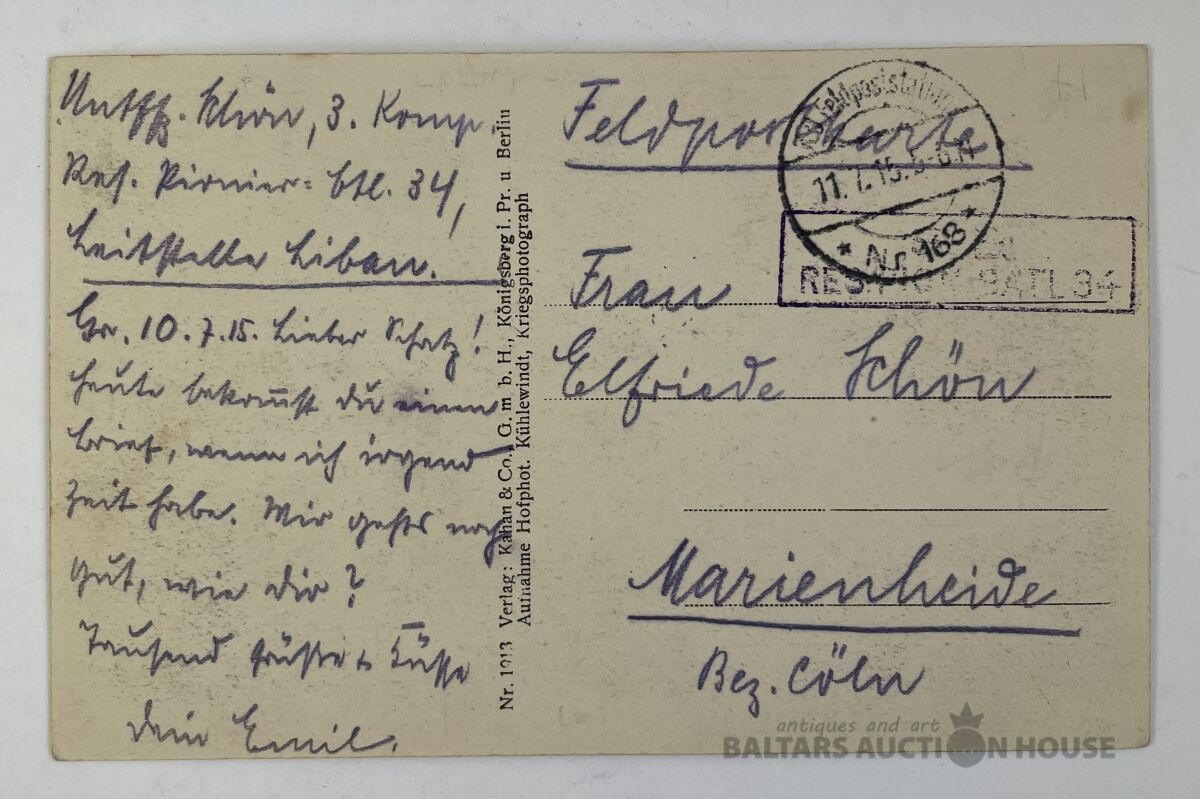 Untffz. Schön, 3. Komp.
Res. Pionier-Btl. 34,
Leitstelle Libau.
Gr. 10.7.15. Lieber Schatz!
heute bekom̅st du einen
Brief, wenn ich irgend
Zeit habe. Mir gehts noch
gut, wie dir?
Tausend Grüße + Küsse
dein Emil.
Nr. 1913 Verlag: Kahan & Co., G. m b. H., Königsberg i. Pr. u Berlin
Aufnahme Hofphot. Kühlewindt, Kriegsphotograph
Feldpostkarte
Feldpoststation
11.7.15. 5-6 N
* Nr. 168 *
RES. PION. BATL 34
Frau
Elfriede Schön
Marienheide
Bez. Cöln
antiques and art
BALTARS AUCTION HOUSE